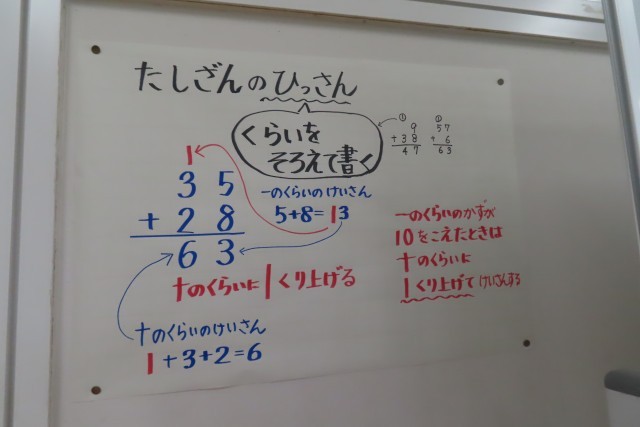 たしざんのひっさん
くらいを
そろえて書く
① 9
+38
47
① 57
+ 6
63
1
35
+28
63
一のくらいのけいさん
5+8=13
十のくらいに1くり上げる
十のくらいのけいさん
1+3+2=6
一のくらいのかずが
10をこえたときは
十のくらいに
1くり上げてけいさんする